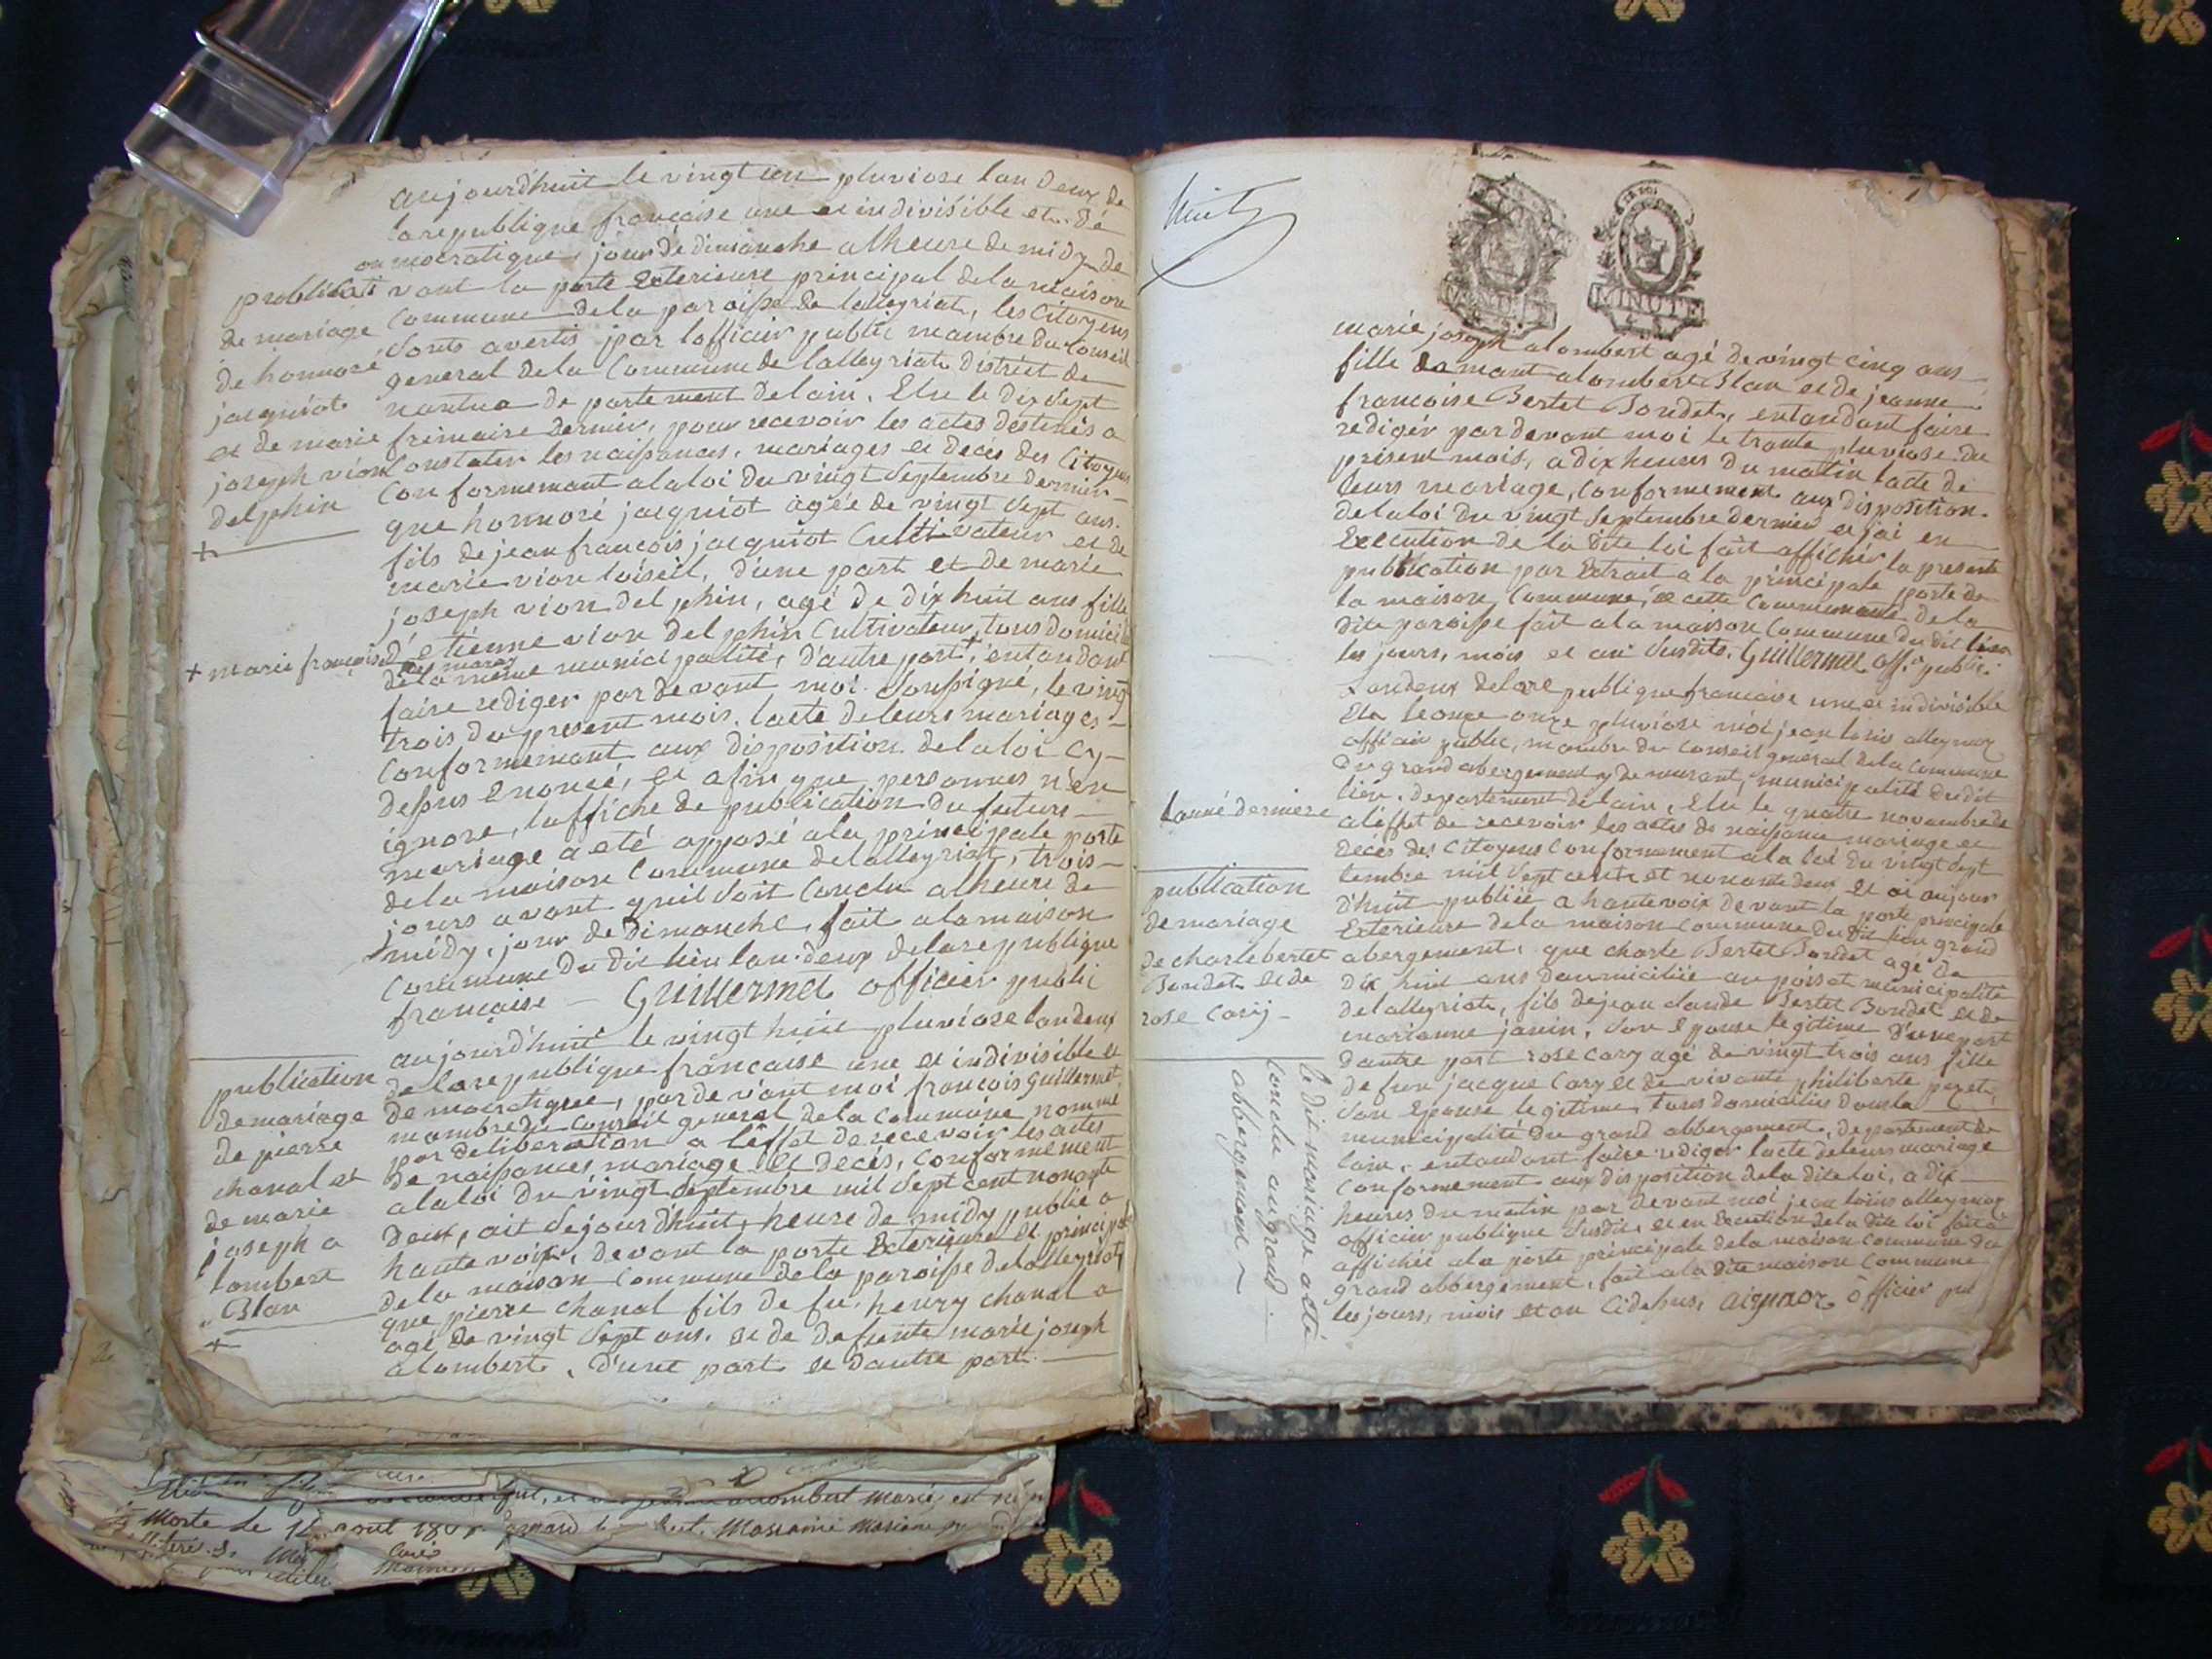 aujourdhuit le vingt un pluviose lan deux de
la republique française une et indivisible et dé
mocratique, jour de dimanche a lheure de midy de
vant la porte Exterieure principal de la maison
commune de la paroisse de lalleyriat, les Citoyens
sonts avertis par lofficier public mambre du Conseil
general de la Commune de lalleyriat district de
nantua de partement de lain, Elu le dix sept
frimaire dernier, pour recevoir les actes destinés a
Constater les naissances, mariages et décès des Citoyens
Conformemant a la loi du vingt Septembre dernier
que honnoré jacquiot agée de vingt sept ans
fils de jean françois jacquiot Cultivateur et de
marie vion loiseil, d'une part et de marie
joseph vion delphin, agé de dix huit ans fille
d'etienne vion delphin Cultivateur, tous domicil
de la même municipalité, d'autre part +, entandant
faire rediger par devant moi Soussigné, le vingt
trois du present mois, lacte de leurs mariages
Conformemant aux disposition de la loi Cy
dessus Enoncé, et afin que personnes n'en
ignore, laffiche de publication du futurs
mariage a eté apposé a la principale porte
de la maison Commune de lalleyriat, trois
jours avant quil soit Conclu a lheure de
midy, jour de dimanche, fait a la maison
Commune du dit lieu lan deux de la republique
française Guillermet officier public
publicati
on
de mariage
de honnoré
jacquiot
et de marie
joseph vion
delphin
+
+ marie françoise
aujourd'huit le vingt huit pluviose lan deux
de la republique francaise une et indivisible et
democratique, par devant moi françois Guillermet
mambre du Conseil general de la Commune nommé
par deliberation a l'éffet de recevoir les actes
de naissances, mariage et decés, Conformement
a la loi du vingt Septembre mil Sept cent nonante
deux, ait dejourdhuit, heure de midy publié a
haute voix, devant la porte Exterieure et principale
de la maison Commune de la paroisse de lalleyriat
que pierre chanal fils de fu henry chanal a
agé de vingt Sept ans, et de defunte marie joseph
alombert, d'une part et dautre part
publication
de mariage
de pierre
chanal et
de marie
joseph a
lombert
Blan
+
huit
MINUTE
MINUTE
marie joseph alombert agé de vingt cinq ans
fille de mant alombert Blan et de jeanne
francoise Bertet Bondet, entandant faire
rediger par devant moi le trante pluviose du
présent mois, a dix heures du matin lacte de
leurs mariage, Conformement aux disposition
de la loi du vingt Septembre dernier et jai en
Execution de la dite loi fait afficher la presente
publication par Extrait a la principale porte de
la maison Commune, de cette Communauté de la
dite paroisse fait a la maison Commune du dit lieu
les jours, mois et an Susdits. Guillermet off. public
Landeux de la republique francaise une et indivisible
Et le onze pluviose moi jean louis alleymoz
officier public, mambre du Conseil general de la Commune
du grand abergement, municipalité du dit
lieu, departement de lain, Elu le quatre novambre de
a léffet de recevoir les actes de naissance mariage et
décès des Citoyens Conformement a la loi du vingt sept
tembre mil Sept cents et nonante deux Et ai aujour
d'huit publiée a haute voix devant la porte principale
Exterieure de la maison Commune du dit lieu grand
abergement, que charle Bertet Bondet agé de
dix huit ans doumiciliée au poisat municipalité
de lalleyriat, fils de jean claude Bertet Bondet et de
marianne janin, Son Epouse legitime d'une part
dautre part rose cary agé de vingt trois ans fille
de feu jacque Cary et de vivante philiberte
Son Epouse legitime, tous domiciliés dans la
municipalité du grand abbergement, departement de
lain, entandant faire rediger lacte de leurs mariage
Conformement aux disposition de la dite loi, a dix
heures du matin par devant moi jean louis alleymoz
officier publique Susdit, et en Execution de la dite loi fait
affichée a la porte principale de la maison Commune du
grand abbergement, fait a la dite maison Commune
les jours, mois et an Cidessus, officier pub
lanné derniere
publication
de mariage
de charle bertet
Bondet et de
rose Cary
le dit mariage a été
conclu au grand
abbergement
Morte le